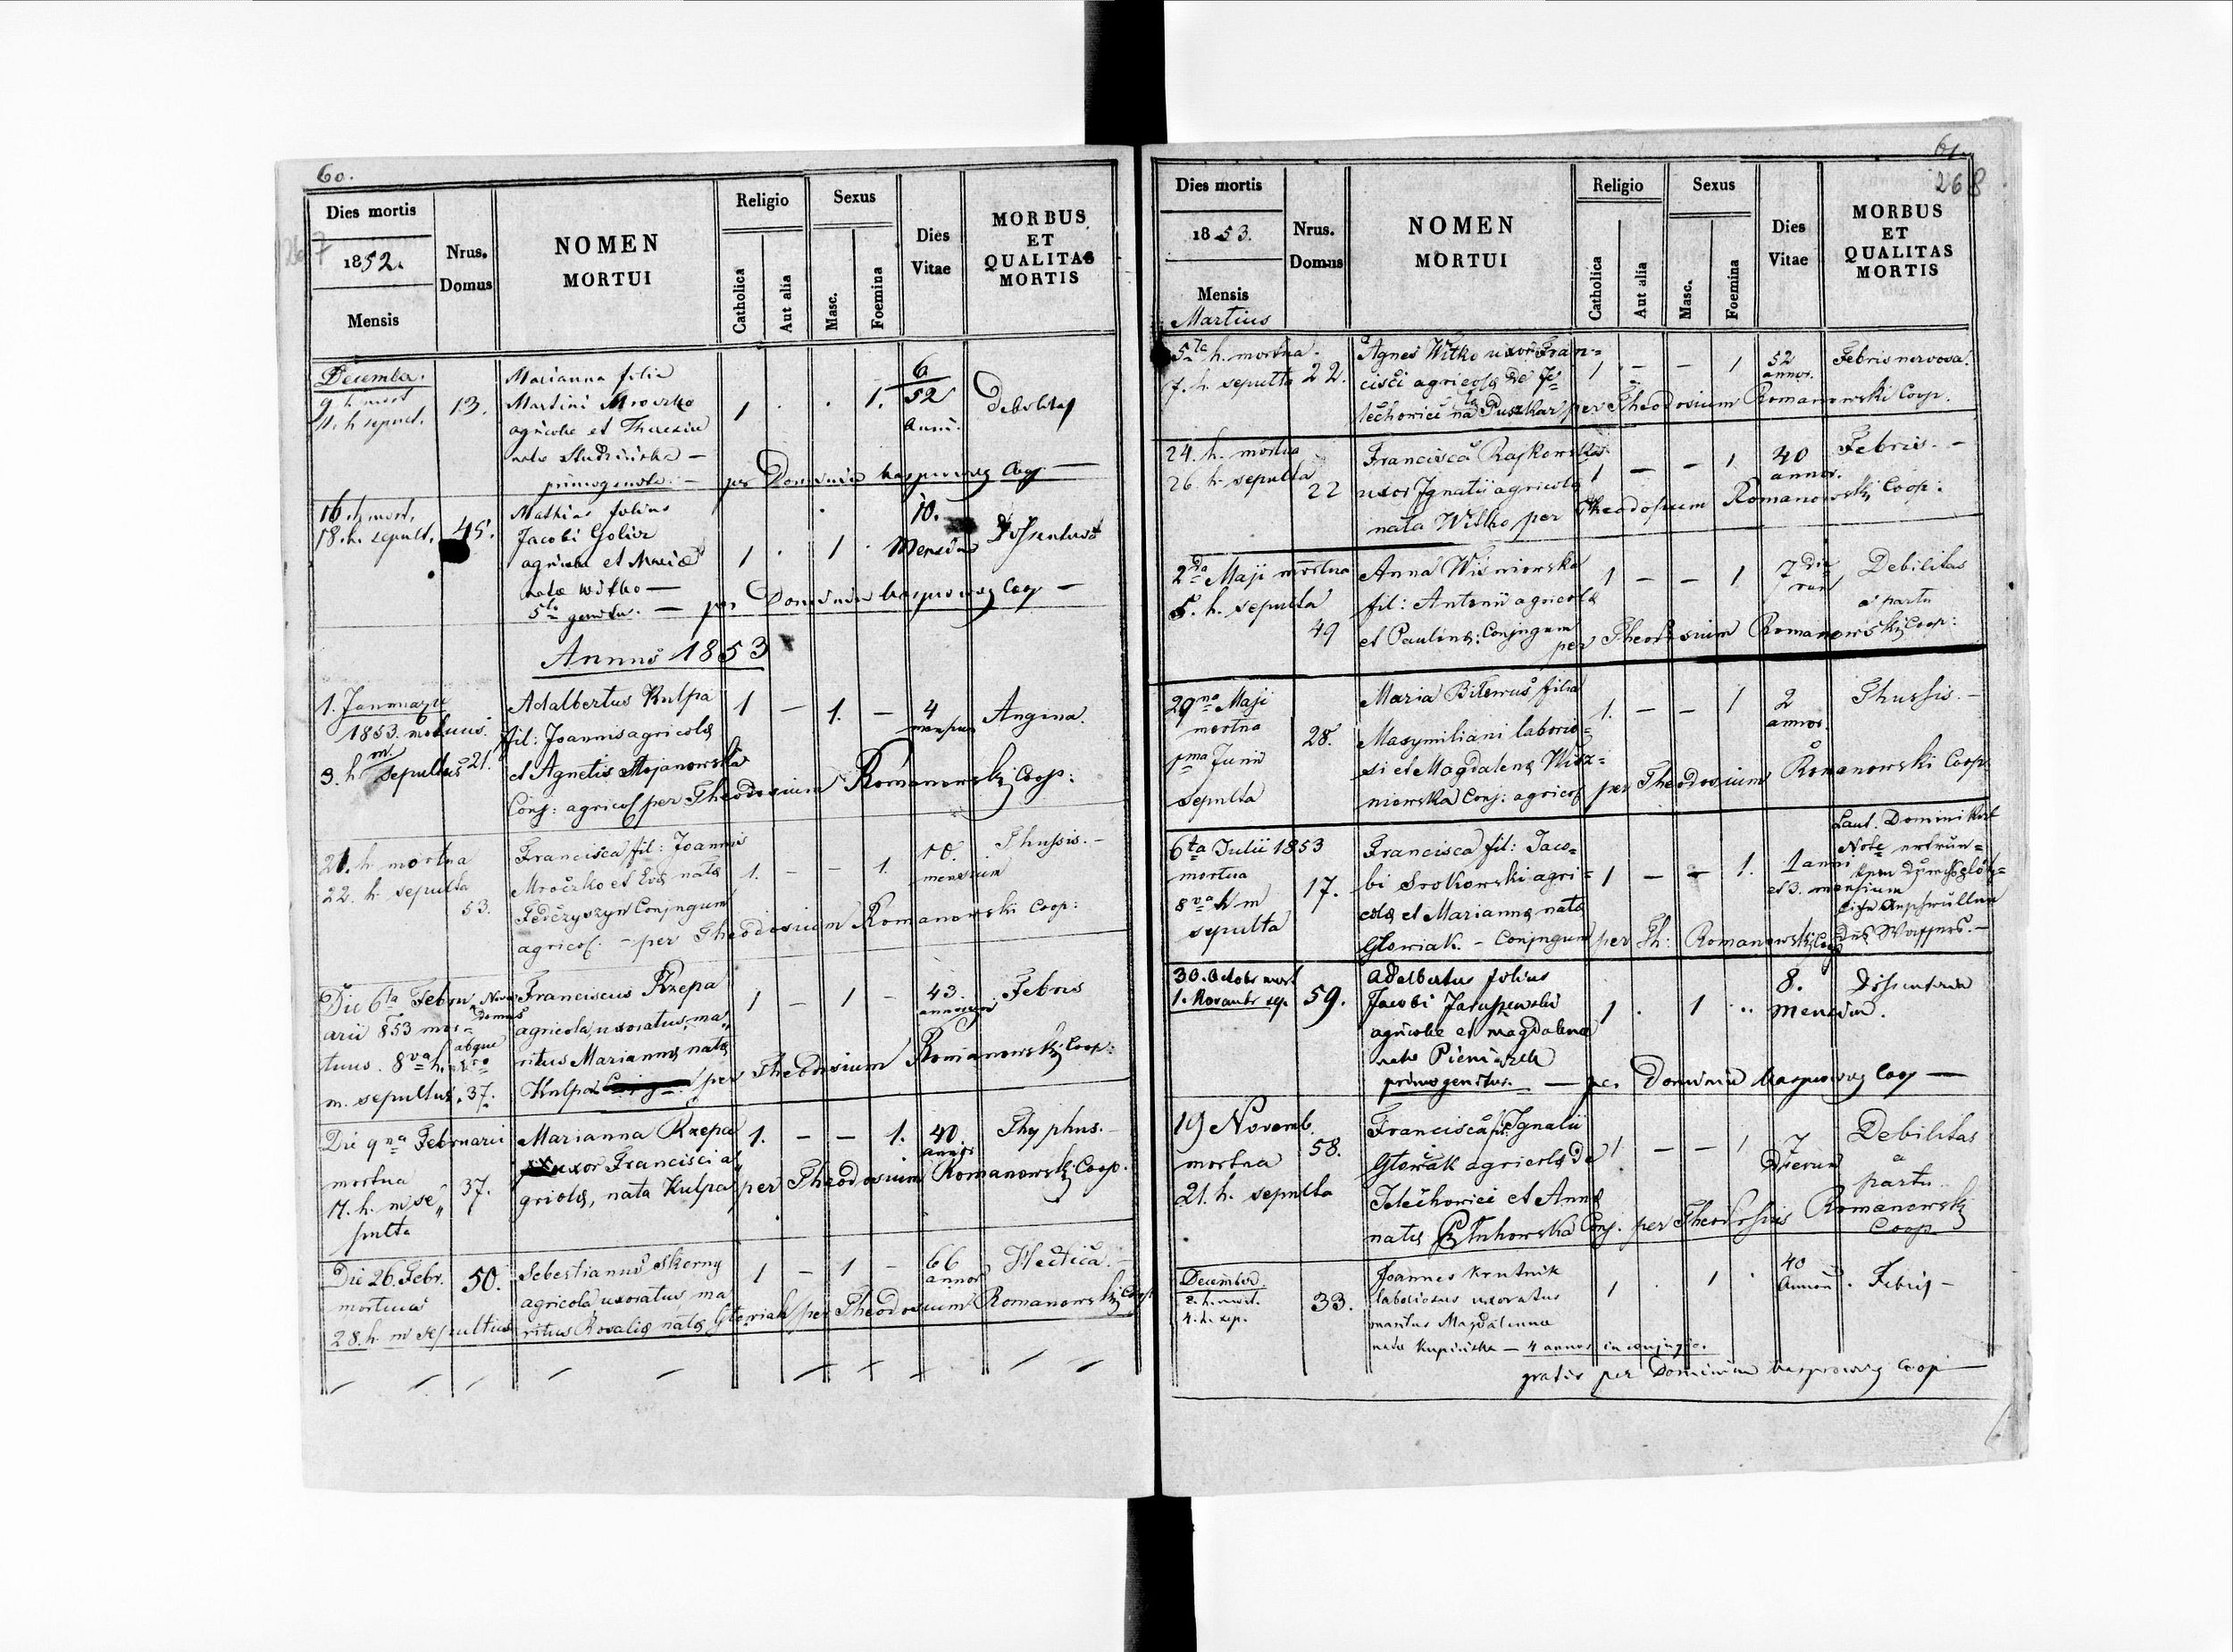 60.
267
Dies mortis
1852.
Mensis
Nrus. Domus
NOMEN MORTUI
Religio
Catholica
Aut alia
Sexus
Masc.
Foemina
Dies Vitae
MORBUS ET QUALITAS MORTIS
December.
9 h. mort
11. h sepult.
13.
Marianna filia
Martini Mroczko
agricolae et Theresiae
natae Studzińska —
primogenita. — per Dominum Kasprowicz Coop —
1 . . 1.
6/52 Anni.
Debilitas
16. h mort.
18. h. sepult.
45.
Mathias filius
Jacobi Golier
agricolae et Mariae
natae Witko —
5ti genitu. — per Dominum Kasprowicz Coop —
1 . 1 .
10. Mensium
Annus 1853
1. Januarii
1853. mortuus.
3. h. m. sepultus
21.
Adalbertus Kulpa
fil: Joannis agricolae
et Agnetis Stojanowska
Conj: agricol per Theodosium Romanowski Coop:
1 — 1. —
4 menses
Angina.
21. h. mortua
22. h. sepulta
53.
Francisca fil: Joannis
Mroczko et Evae natae
Fedczyszyn Conjugum
agricol. — per Theodosium Romanowski Coop:
1. — — 1.
10. mensium
Thussis. —
Die 6ta Febru
arii 853 mor=
tuus. 8va h.
m. sepultus.
Nrus Domus
absque
37.
Franciscus Rzepa
agricola, uxoratus, ma„
ritus Mariannae natae
Kulpa per Theodosium Romanowski Coop:
1 — 1 —
43. annorum
Febris
Die 9na Februarii
mortua
11. h. m se„
pulta
37.
Marianna Rzepa
uxor Francisci a„
gricolae, nata Kulpa per Theodosium Romanowski Coop.
1. — — 1.
40. annor
Thyphus. —
Die 26. Febr.
mortuus
28. h. m sepultus
50.
Sebestianus Skorny
agricola uxoratus ma
ritus Rosaliae natae Głowiak per Theodosium Romanowski Coop
1 — 1 —
66 annor
Hectica.
61.
268
Dies mortis
1853.
Mensis
Martius
Nrus. Domus
NOMEN MORTUI
Religio
Catholica
Aut alia
Sexus
Masc.
Foemina
Dies Vitae
MORBUS ET QUALITAS MORTIS
5ta h. mortua.
7. h. sepulta
22.
Agnes Witko uxor Fran=
cisci agricolae de Te=
lechowici nata Puszkar per Theodosium Romanowski Coop.
1 — — 1
52 annor.
Febris nervosa.
24. h. mortua
26. h. sepulta
22
Francisca Rajkowska
uxor Ignatii agricolae
nata Witko per Theodosium Romanowski Coop:
1 — — 1
40 annor.
Febris. —
2da Maji mortua
5. h. sepulta
49
Anna Wiśniowska
fil: Antonii agricolae
et Paulinae: Conjugum
per Theodosium Romanowski Coop:
1 — — 1
7 dierum
Debilitas
a partu
29na Maji
mortua
1ma Junii
sepulta
28.
Maria Bilewus filia
Maxymiliani laborio=
si et Magdalenae Wisz=
niowska Conj: agricol per Theodosium Romanowski Coop
1. — — 1
2 annor.
Thussis. —
6ta Julii 1853
mortua
8va h m
sepulta
17.
Francisca fil: Jaco=
bi Srokowski agri=
colae et Mariannae natae
Głowiak. — Conjugum per Th: Romanowski Coop
1 — — 1.
1 anni
et 3. mensium
Laut. Domini
Note ertrun=
ken
des Wassers. —
30. Octobr mort
1. Novembr sep.
59.
Adalbertus filius
Jacobi
agricolae et Magdalenae
natae Pieniążek
primogenitus. — per Dominum Kasprowicz Coop —
1 . 1 ..
8. Mensium.
19 Novemb.
mortua
21. h. sepulta
58.
Francisca fil: Ignatii
Głowak agricolae de
Telechowici et Annae
natae Conj. per Theodosium Romanowski
Coop
1 — — 1
7 Dierum
Debilitas
a
partu
December
2. h. mort.
4. h. sep.
33.
Joannes Krutnik
laboriosus uxoratus
maritus Magdalenae
natae Kupińska — 4 annos in conjugio.
gratis per Dominum Kasprowicz Coop —
1 . 1 .
40 Annor.
Febris —